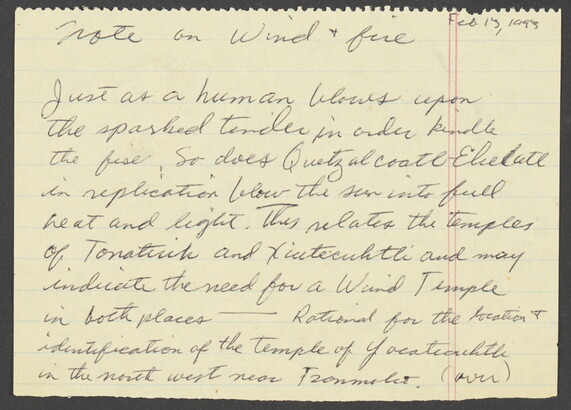 Feb 13, 1993
Note on Wind + fire
Just as a human blows upon
the sparked tinder in order kindle
the fire, So does Quetzalcoatl-Ehecatl
in replication blow the sun into full
heat and light. This relates the temples
of Tonatiuh and Xiutecuhtli and may
indicate the need for a Wind Temple
in both places — Rational for the location +
identification of the temple of Yacatecuhtli
in the north west near Tzonmolco. (over)